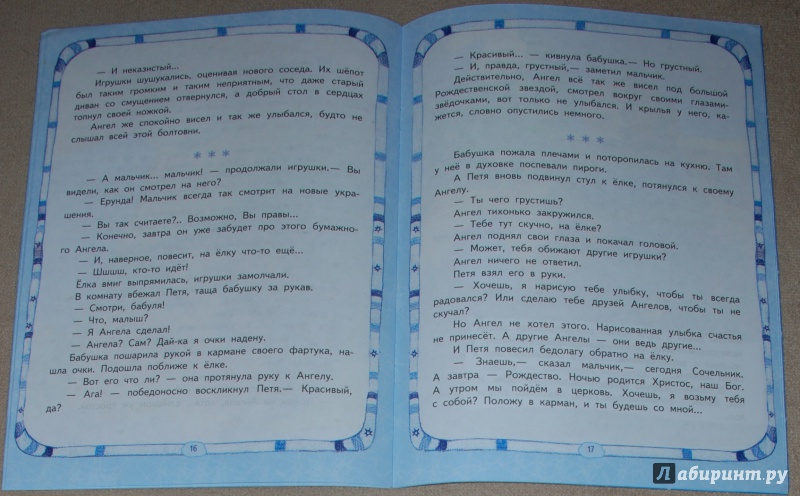 — И неказистый...
Игрушки шушукались, оценивая нового соседа. Их шёпот
был таким громким и таким неприятным, что даже старый
диван со смущением отвернулся, а добрый стол в сердцах
топнул своей ножкой.
Ангел же спокойно висел и так же улыбался, будто не
слышал всей этой болтовни.
* * *
— А мальчик... мальчик! — продолжали игрушки.— Вы
видели, как он смотрел на него?
— Ерунда! Мальчик всегда так смотрит на новые укра-
шения.
— Вы так считаете?.. Возможно, Вы правы...
— Конечно, завтра он уже забудет про этого бумажно-
го Ангела.
— И, наверное, повесит, на ёлку что-то ещё...
— Шшшш, кто-то идёт!
Ёлка вмиг выпрямилась, игрушки замолчали.
В комнату вбежал Петя, таща бабушку за рукав.
— Смотри, бабуля!
— Что, малыш?
— Я Ангела сделал!
— Ангела? Сам? Дай-ка я очки надену.
Бабушка пошарила рукой в кармане своего фартука, на-
шла очки. Подошла поближе к ёлке.
— Вот его что ли? — она протянула руку к Ангелу.
— Ага! — победоносно воскликнул Петя.— Красивый,
да?
16
— Красивый... — кивнула бабушка.— Но грустный.
— И, правда, грустный,— заметил мальчик.
Действительно, Ангел всё так же висел под большой
Рождественской звездой, смотрел вокруг своими глазами-
звёдочками, вот только не улыбался. И крылья у него, ка-
жется, словно опустились немного.
* * *
Бабушка пожала плечами и поторопилась на кухню. Там
у неё в духовке поспевали пироги.
А Петя вновь подвинул стул к ёлке, потянулся к своему
Ангелу.
— Ты чего грустишь?
Ангел тихонько закружился.
— Тебе тут скучно, на ёлке?
Ангел поднял свои глаза и покачал головой.
— Может, тебя обижают другие игрушки?
Ангел ничего не ответил.
Петя взял его в руки.
— Хочешь, я нарисую тебе улыбку, чтобы ты всегда
радовался? Или сделаю тебе друзей Ангелов, чтобы ты не
скучал?
Но Ангел не хотел этого. Нарисованная улыбка счастья
не принесёт. А другие Ангелы — они ведь другие...
И Петя повесил бедолагу обратно на ёлку.
— Знаешь,— сказал мальчик,— сегодня Сочельник.
А завтра — Рождество. Ночью родится Христос, наш Бог.
А утром мы пойдём в церковь. Хочешь, я возьму тебя
с собой? Положу в карман, и ты будешь со мной...
17
Лабиринт.ру